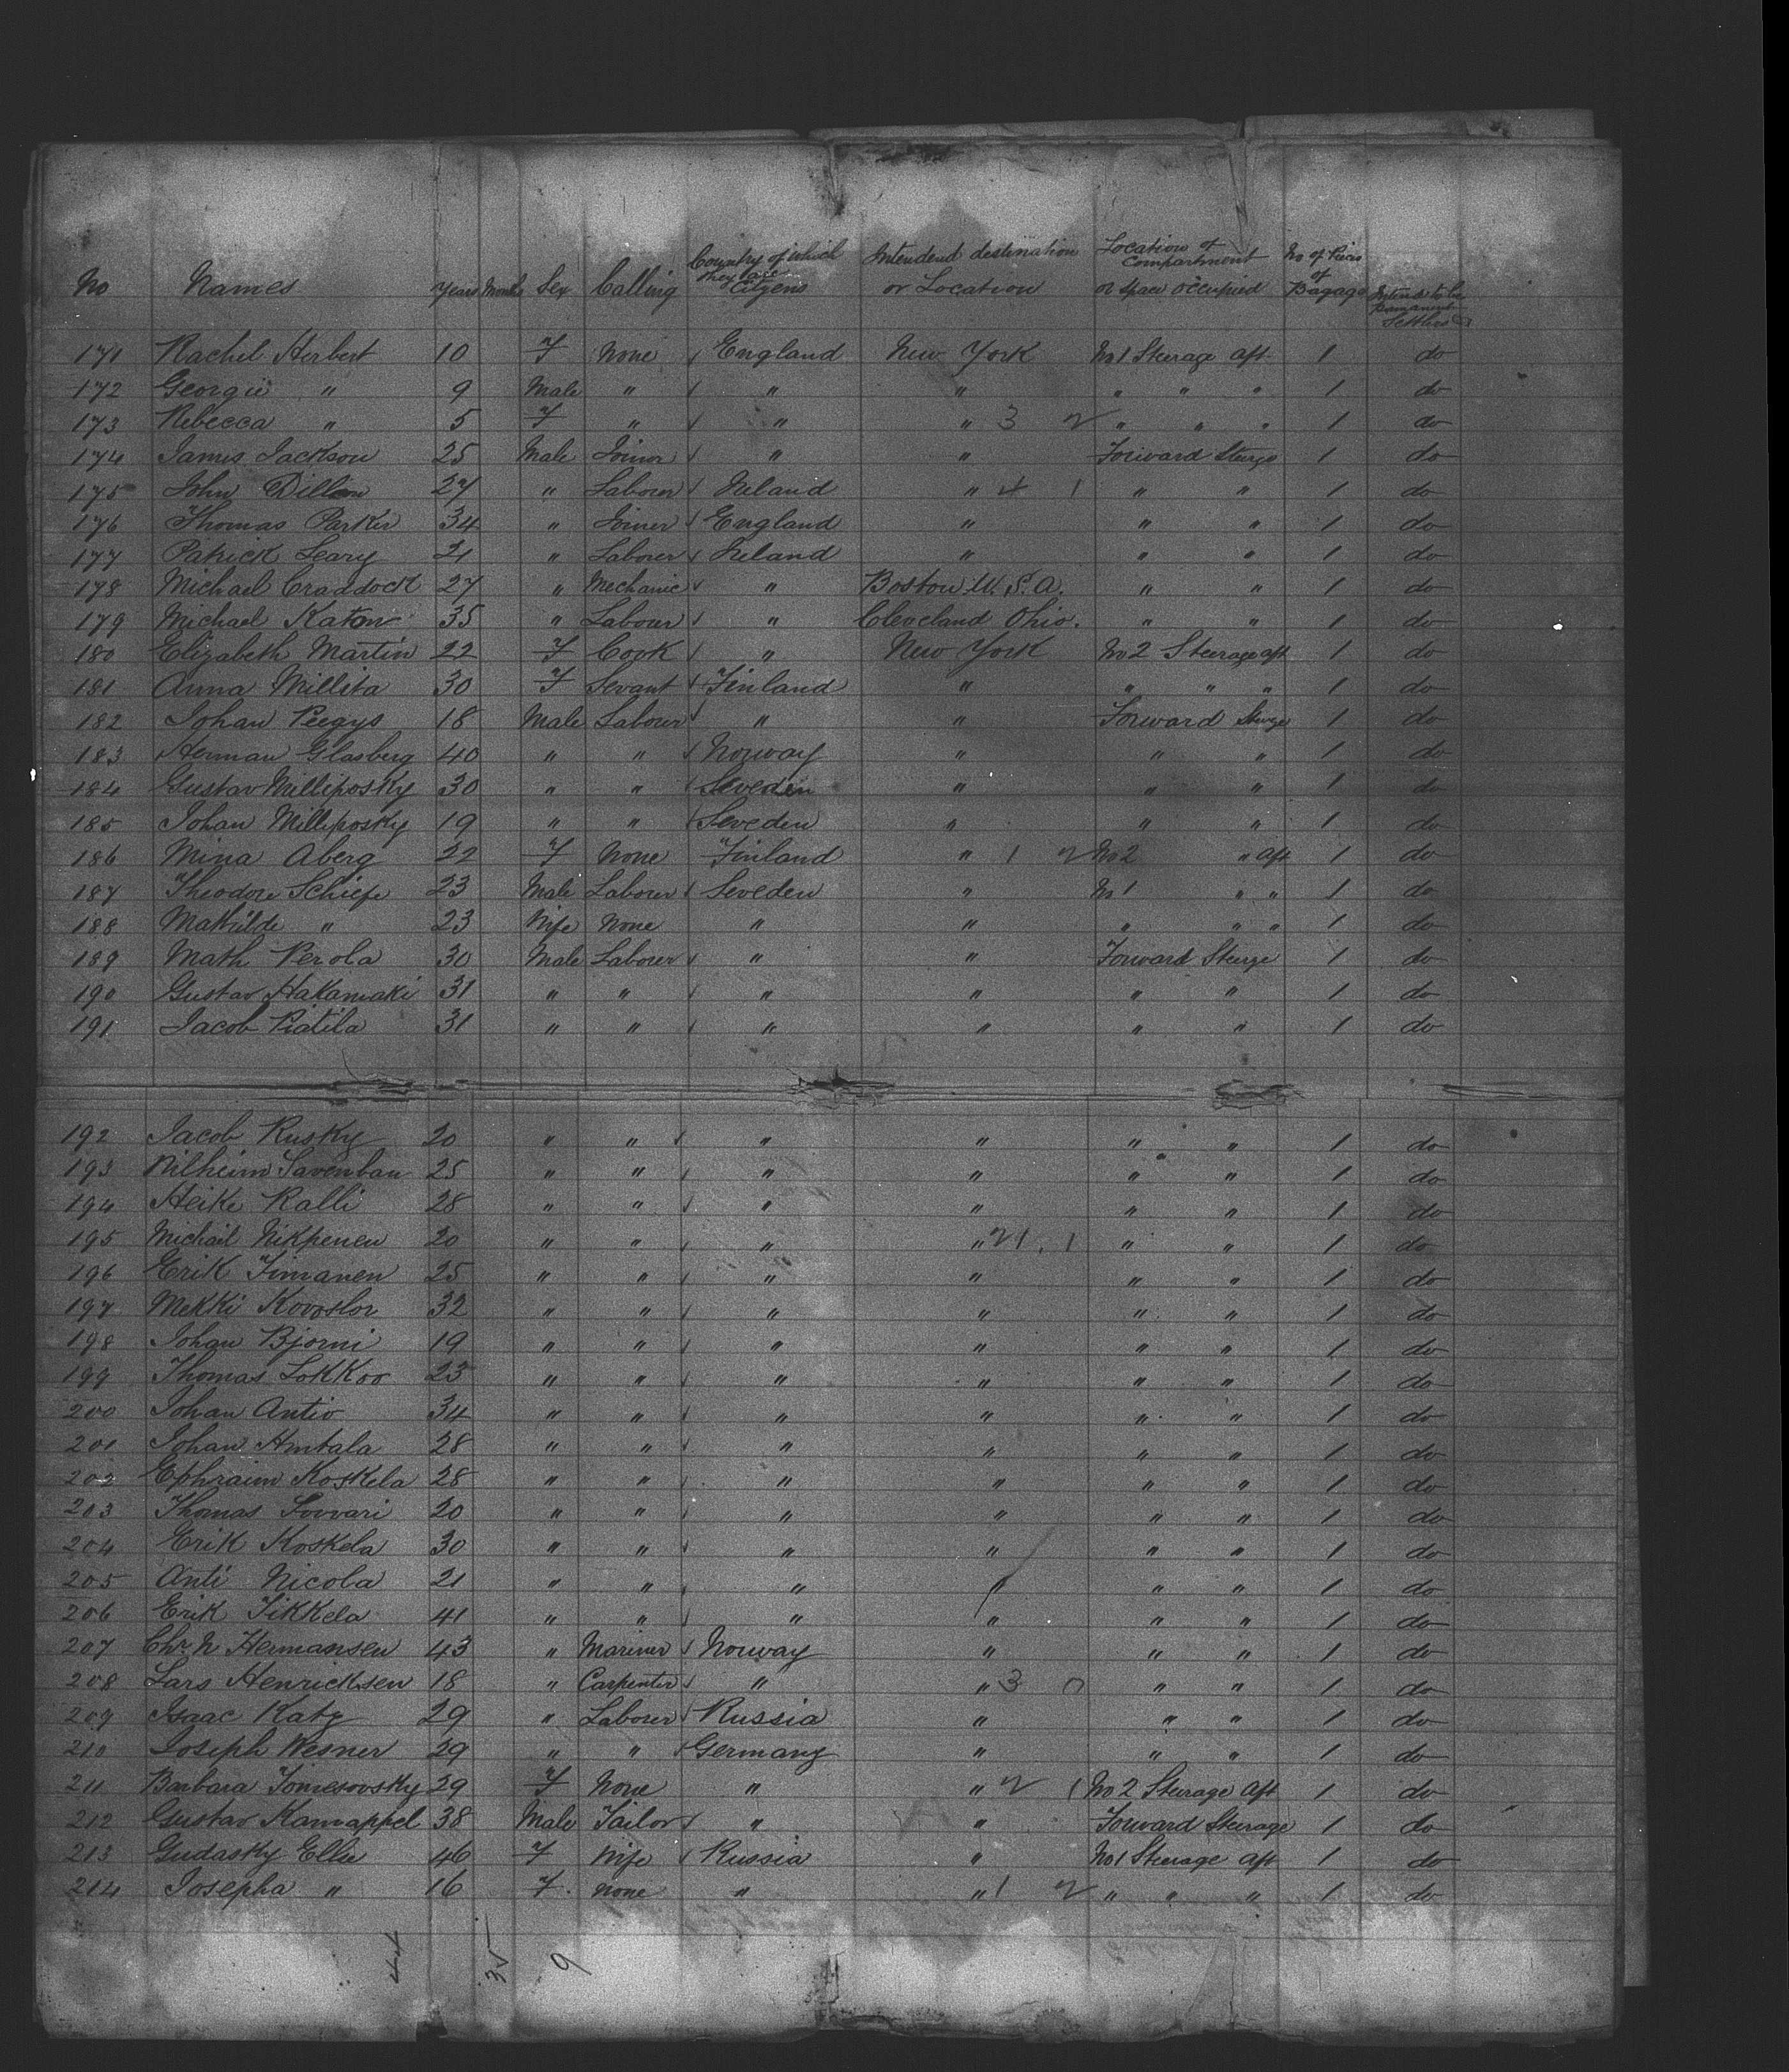 No Names Years Months Sex Calling Country of which they are Citizens Intendend destination or Location Location of compartment or space occupied No of Pieces of Bagage Intend to be Permanent Settlers
171 Rachel Herbert 10 F None England New York No 1 Steerage aft 1 do
172 Georgie " 9 Male " " " " " " 1 do
173 Rebecca " 5 F " " " 3 2 " " " 1 do
174 James Jackson 25 Male Joiner " " Forward Sterge 1 do
175 John Dillon 27 " Labourer Ireland " 4 1 " " 1 do
176 Thomas Parker 34 " Joiner England " " " 1 do
177 Patrick Leary 21 " Labourer Ireland " " " 1 do
178 Michael Craddock 27 " Mechanic " Boston U.S.A. " " 1 do
179 Michael Katon 35 " Labourer " Cleveland Ohio. " " 1 do
180 Elizabeth Martin 22 F Cook " New York No 2 Steerage aft 1 do
181 Anna Millita 30 F Sevant Finland " " " " 1 do
182 Johan Peegys 18 Male Labourer " " Forward Sterge 1 do
183 Herman Glasberg 40 " " Norway " " " 1 do
184 Gustav Milliposky 30 " " Seveden " " " 1 do
185 Johan Milliposky 19 " " Seveden " " " 1 do
186 Mina Aberg 22 F None Finland " 1 2 No 2 " aft 1 do
187 Theodore Schiefe 23 Male Labourer Seveden " No 1 " " 1 do
188 Mathilde " 23 Wife None " " " " " 1 do
189 Math Perola 30 Male Labourer " " Forward Sterge 1 do
190 Gustav Hakamaki 31 " " " " " " 1 do
191 Jacob Piatila 31 " " " " " " 1 do
192 Jacob Rusky 20 " " " " " " 1 do
193 Wilheim Savenbau 25 " " " " " " 1 do
194 Heike Ralli 28 " " " " " " 1 do
195 Michail Nikpenen 20 " " " " 21 1 " " 1 do
196 Erik Timanen 25 " " " " " " 1 do
197 Mekki Kovoslor 32 " " " " " " 1 do
198 Johan Bjorni 19 " " " " " " 1 do
199 Thomas Lokkoo 23 " " " " " " 1 do
200 Johan Antio 34 " " " " " " 1 do
201 Johan Hmtala 28 " " " " " " 1 do
202 Ephraim Koskela 28 " " " " " " 1 do
203 Thomas Sovvari 20 " " " " " " 1 do
204 Erik Koskela 30 " " " " " " 1 do
205 Anti Nicola 21 " " " " " " 1 do
206 Erik Tikkela 41 " " " " " " 1 do
207 Chr. N Hermansen 43 " Mariner Norway " " " 1 do
208 Lars Henricksen 18 " Carpenter " " 3 0 " " 1 do
209 Isaac Katz 29 " Labourer Russia " " " 1 do
210 Joseph Wesner 29 " " Germany " " " 1 do
211 Barbara Tomesovsky 29 F None " " 2 1 No 2 Steerage aft 1 do
212 Gustav Kamappel 38 Male Tailor " " Forward Steerage 1 do
213 Gudasky Ellie 46 F Wife Russia " No 1 Steerage aft 1 do
214 Josepha " 16 F. None " " 1 2 " " " 1 do
44 35 9